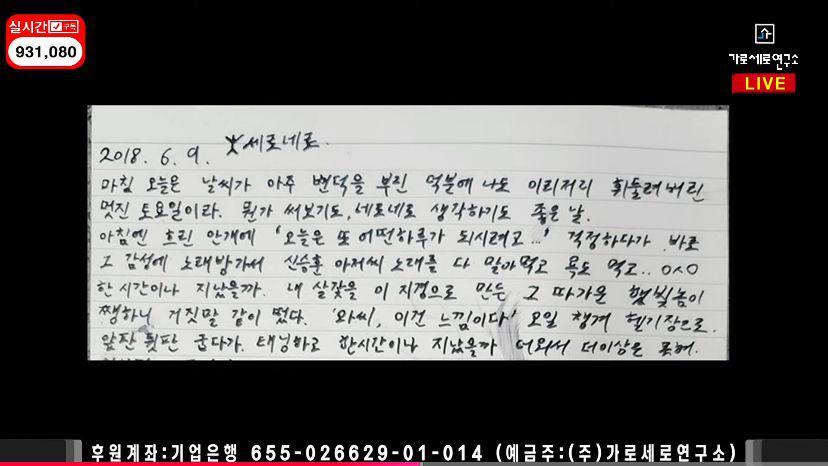 실시간 구독
931,080
가로세로연구소
LIVE
2018. 6. 9. 세로네로.
마침 오늘은 날씨가 아주 변덕을 부린 덕분에 나도 이리저리 휘둘려버린
멋진 토요일이라. 뭔가 써보기도, 네로네로 생각하기도 좋은 날.
아침엔 흐린 안개에 '오늘은 또 어떤하루가 되시려고...' 걱정하다가 바로
그 감성에 노래방가서 신승훈 아저씨 노래를 다 말아먹고 욕도 먹고..
한시간이나 지났을까. 내 살갗을 이 지경으로 만든 그 따가운 햇빛놈이
쨍하니 거짓말 같이 떴다. '와씨, 이건 느낌이다' 오일 챙겨 헬기장으로.
앞판 뒷판 굽다가. 태닝하고 한시간이나 지났을까 더와서 더이상은 못해.
후원계좌:기업은행 655-026629-01-014 (예금주:(주)가로세로연구소)